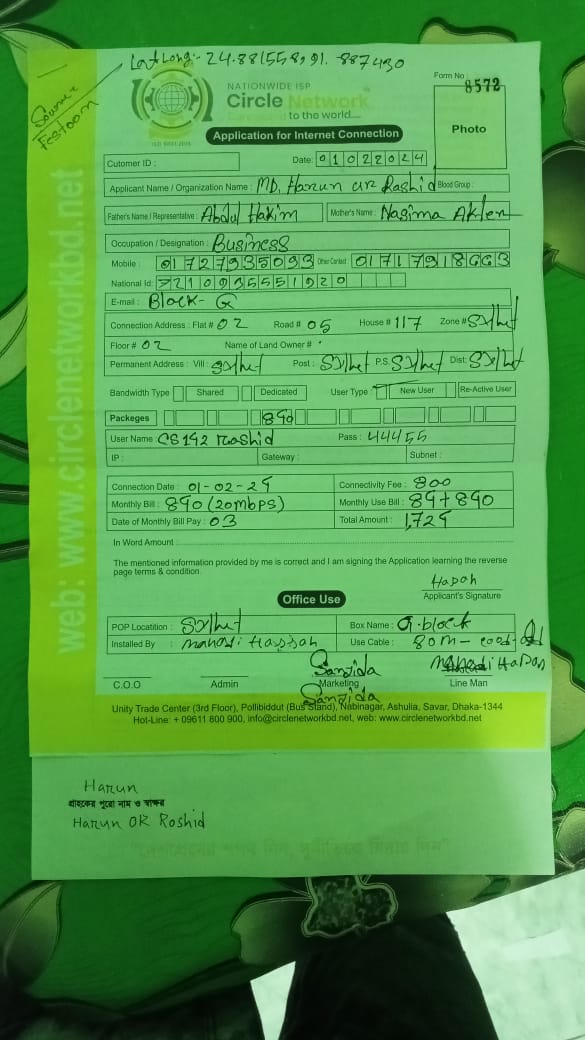 Lat Long:- 24.881558, 91.887430
Source
Festoon
NATIONWIDE ISP
Circle Network
to the world....
ISO 9001:2015
Form No
8572
Photo
Application for Internet Connection
Cutomer ID :
Date: 01022024
Applicant Name / Organization Name : MD. Harun ur Rashid Blood Group :
Father's Name / Representative : Abdul Hakim Mother's Name : Nasima Akter
Occupation / Designation : Business
Mobile : 01727935093 Other Contact : 01717918663
National Id :
E-mail : Block- G
Connection Address : Flat # 02 Road # 05 House # 117 Zone # Sylhet
Floor # 02 Name of Land Owner #
Permanent Address : Vill : Sylhet Post : Sylhet P.S. Sylhet Dist: Sylhet
Bandwidth Type Shared Dedicated User Type : New User Re-Active User
Packeges 890
User Name : CS192 Rashid Pass : 44455
IP : Gateway : Subnet :
Connection Date : 01-02-24 Connectivity Fee : 800
Monthly Bill : 890 (20mbps) Monthly Use Bill : 84+840
Date of Monthly Bill Pay : 03 Total Amount : 1,724
In Word Amount :
The mentioned information provided by me is correct and I am signing the Application learning the reverse
page terms & condition.
Hapoh
Applicant's Signature
Office Use
POP Locatition : Sylhet Box Name : G.block
Installed By : Mahadi Hassan Use Cable : 80m -
C.O.O Admin Sanzida Marketing Sanzida Mahadi Hapan Line Man
Unity Trade Center (3rd Floor), Pollibiddut (Bus Stand), Nabinagar, Ashulia, Savar, Dhaka-1344
Hot-Line: + 09611 800 900, info@circlenetworkbd.net, web: www.circlenetworkbd.net
web: www.circlenetworkbd.net
Harun
গ্রাহকের পুরো নাম ও স্বাক্ষর
Harun OR Roshid